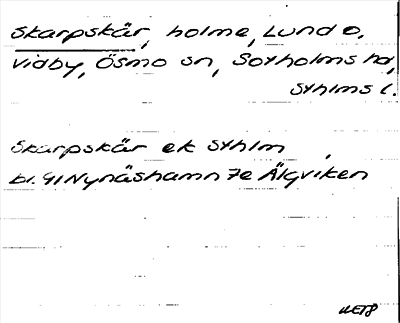 Skarpskär, holme, Lund o.
Vidby, Ösmo sn, Sotholms hd,
Sthlms l.
Skarpskär ek Sthlm,
bl. 41 Nynäshamn 7e Älgviken